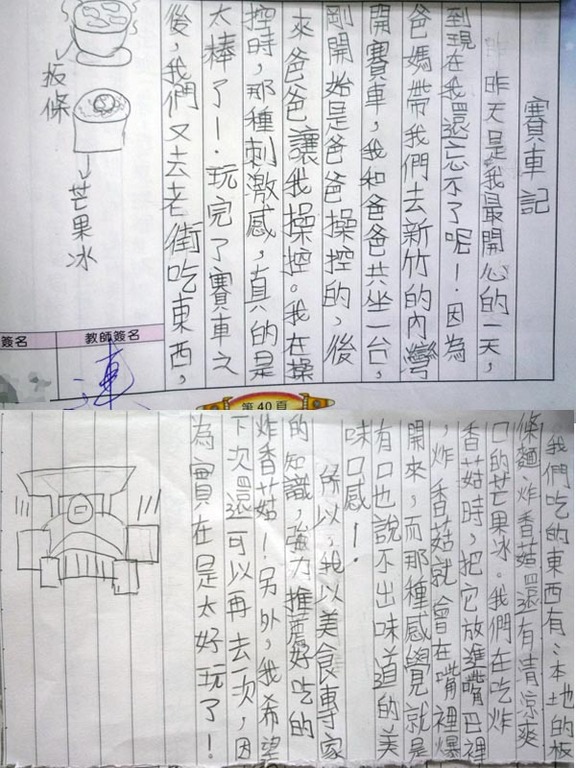 賽車記
昨昨天是我最開心的一天，
到現在我還忘不了呢！因為
爸媽帶我們去新竹的內灣
開賽車，我和爸爸共坐一台，
剛開始是爸爸操控的，後
來爸爸讓我操控。我在操
控時，那種刺激感，真的是
太棒了！玩完了賽車之
後，我們又去老街吃東西，
板條
芒果冰
簽名
教師簽名
第40頁
我們吃的東西有：本地的板
條麵、炸香菇還有清涼爽
口的芒果冰。我們在吃炸
香菇時，把它放進嘴巴裡
，炸香菇就會在嘴裡爆
開來，而那種感覺就是
有口也說不出味道的美
味口感！
所以，我以美食專家
的知識，強力推薦好吃的
炸香菇！另外，我希望
下次還可以再去一次，因
為實在是太好玩了！